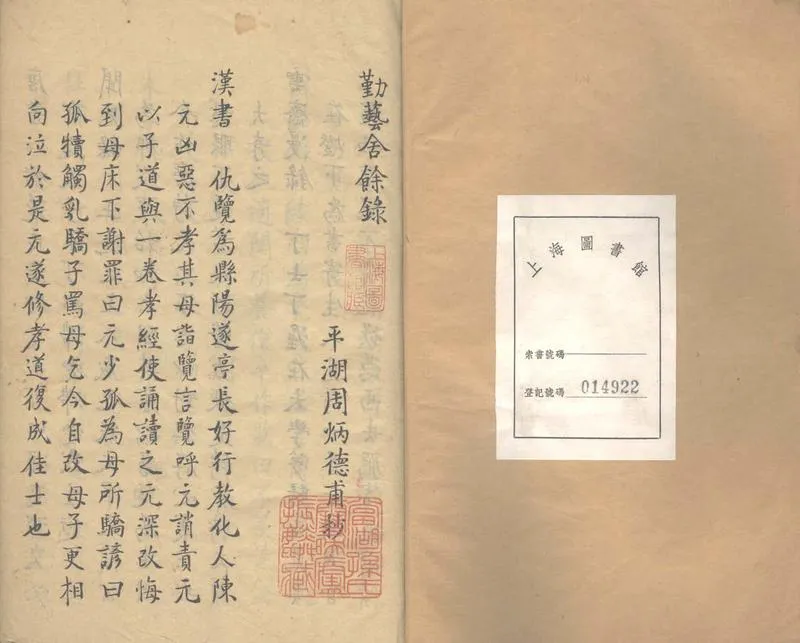 上海圖書館
索書號碼
登記號碼 014922
勤藝舍餘錄
上海圖書館藏
平湖周炳德甫抄
漢書 仇覽爲縣陽遂亭長好行教化人陳
元凶惡不孝其母詣覽言覽呼元誚責元
以子道與一卷孝經使誦讀之元深改悔
到母床下謝罪曰元少孤為母所驕諺曰
孤犢觸乳驕子罵母乞今自改母子更相
向泣於是元遂修孝道復成佳士也